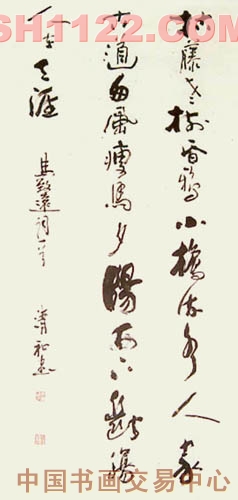 SH1122.COM
枯藤老树昏鴉小橋流水人家
古道西風瘦馬夕陽西下斷腸
人在天涯
馬致遠詞一首
中国书画交易中心